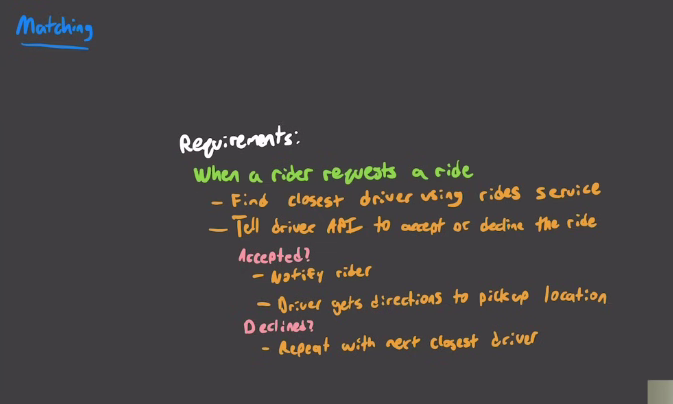 Matching
Requirements:
When a rider requests a ride
- Find closest driver using rides service
- Tell driver API to accept or decline the ride
Accepted?
- Notify rider
- Driver gets directions to pickup location
Declined?
- Repeat with next closest driver